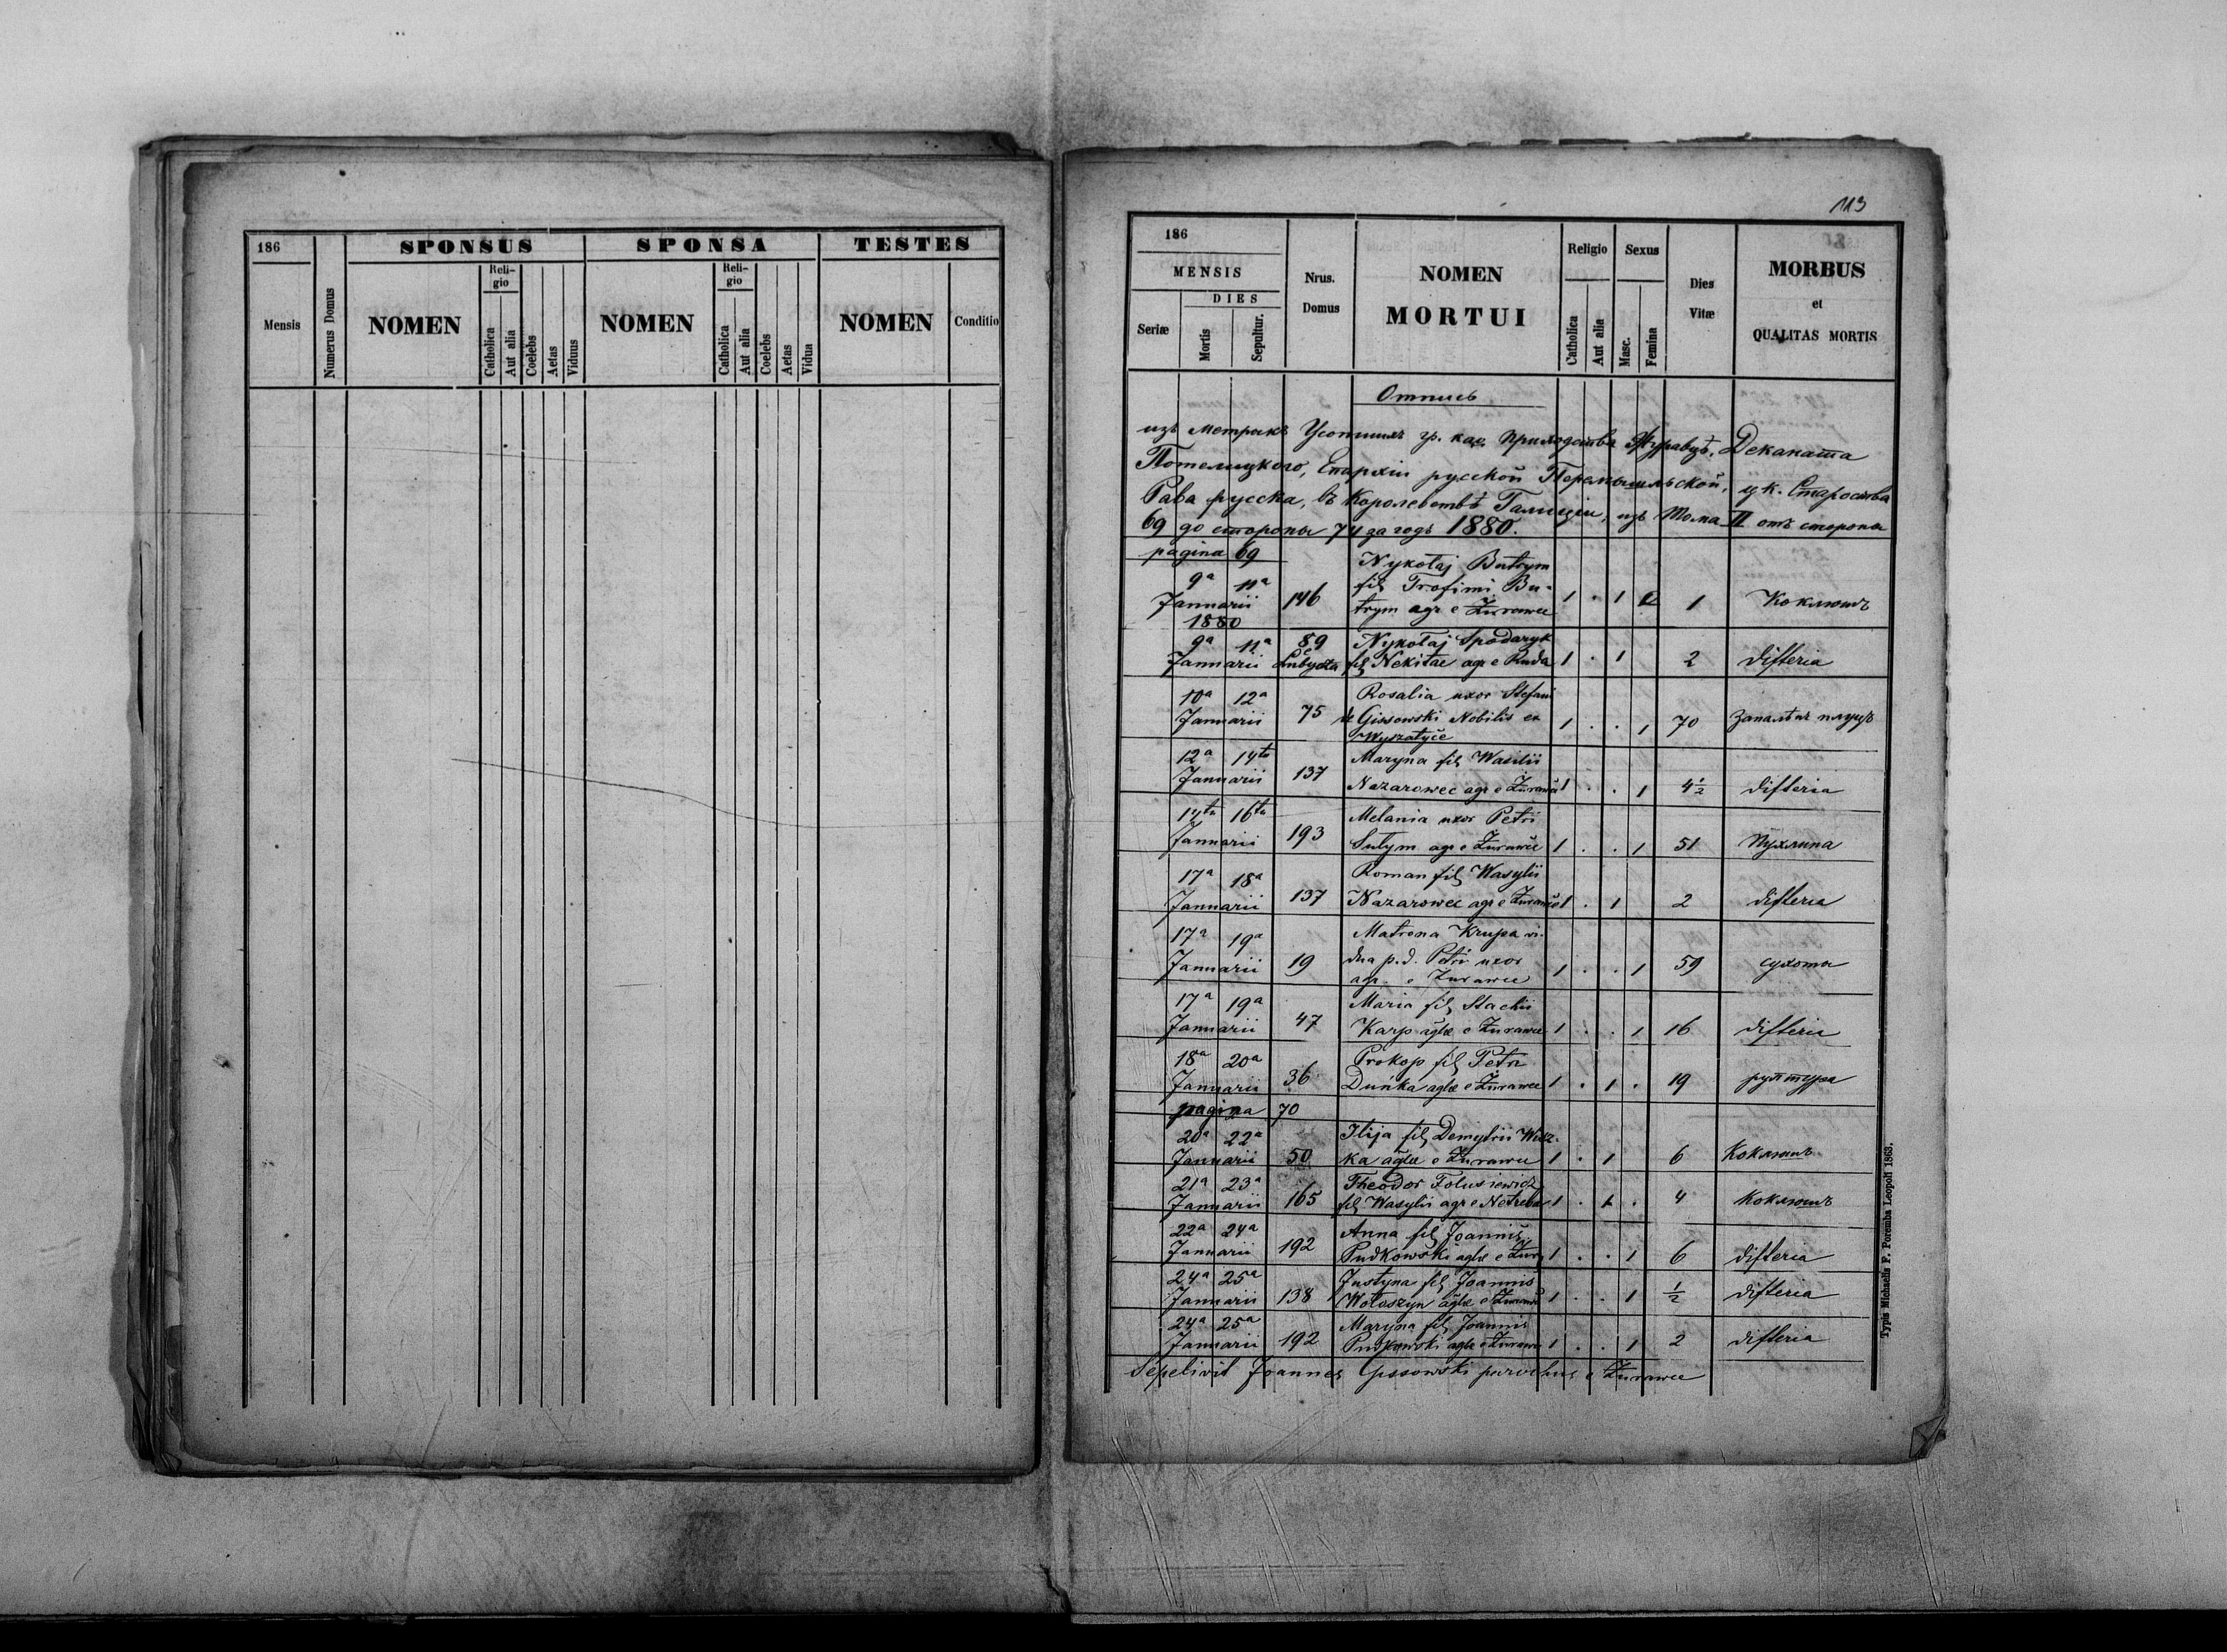 186
SPONSUS
SPONSA
TESTES
Mensis
Numerus Domus
NOMEN
Reli-
gio
Catholica
Aut alia
Coelebs
Aetas
Viduus
NOMEN
Reli-
gio
Catholica
Aut alia
Coelebs
Aetas
Vidua
NOMEN
Conditio
113
186
MENSIS
Seriæ
DIES
Mortis
Sepultur.
Nrus.
Domus
NOMEN
MORTUI
Religio
Catholica
Aut alia
Sexus
Masc.
Femina
Dies
Vitæ
MORBUS
et
QUALITAS MORTIS
Отпись
изъ метрикъ Усопшихъ гр. каѳ. приходства Журавцѣ, Деканата
Потелицкого, Епархіи русской Перемышльской, ц. к. Староства
Рава русска, въ Королевствѣ Галиціи, изъ Тома II отъ стороны
69 до стороны 74 за годъ 1880.
pagina 69
Nykołaj Butrym
9a 11a fil Trofimi Bu-
Januarii 146 trym agr e Żurawce 1 . 1 1 Коклюшъ
1880
9a 11a 89 Nykołaj Spodaryk
Januarii Lubycza fil Nekitae agr e Ruda 1 . 1 2 difteria
10a 12a Rosalia uxor Stefani
Januarii 75 de Gissowski Nobilis ex 1 . . 1 70 Запалѣнє плуцъ
Wyszatyče
12a 14ta Maryna fil Wasilii
Januarii 137 Nazarowec agr e Żurawce 1 . . 1 4½ difteria
14ta 16ta Melania uxor Petri
Januarii 193 Sutym agr e Żurawce 1 . . 1 51 Пухлина
17a 18a Roman fil Wasylii
Januarii 137 Nazarowec agr e Żurawce 1 . 1 2 difteria
17a 19a Matrona Krupa vi-
Januarii 19 dua p.d. Petri uxor 1 . . 1 59 сухоты
agr. e Żurawce
17a 19a Maria fil Stachii
Januarii 47 Karp aglæ e Żurawce 1 . . 1 16 difteria
18a 20a Prokop fil Petri
Januarii 36 Duńka aglæ e Żurawce 1 . 1 . 19 руптура
pagina 70
20a 22a Ilija fil Demytrii
Januarii 50 ka aglæ e Żurawce 1 . 1 6 Коклюшъ
21a 23a Theodor Folusiewicz
Januarii 165 fil Wasylii agr e Netreba 1 . 1 . 4 Коклюшъ
22a 24a Anna fil Joannis
Januarii 192 Pudkowski aglæ e Żur 1 . . 1 6 difteria
24a 25a Justyna fil Joannis
Januarii 138 Wołoszyn aglæ e Żurawce 1 . . 1 ½ difteria
24a 25a Maryna fil Joannis
Januarii 192 Pudkowski aglæ e Żurawce 1 . . 1 2 difteria
Sepelivit Joannes Gissowski parochus e Żurawce
Typis Michaelis F. Poremba Leopoli 1863.